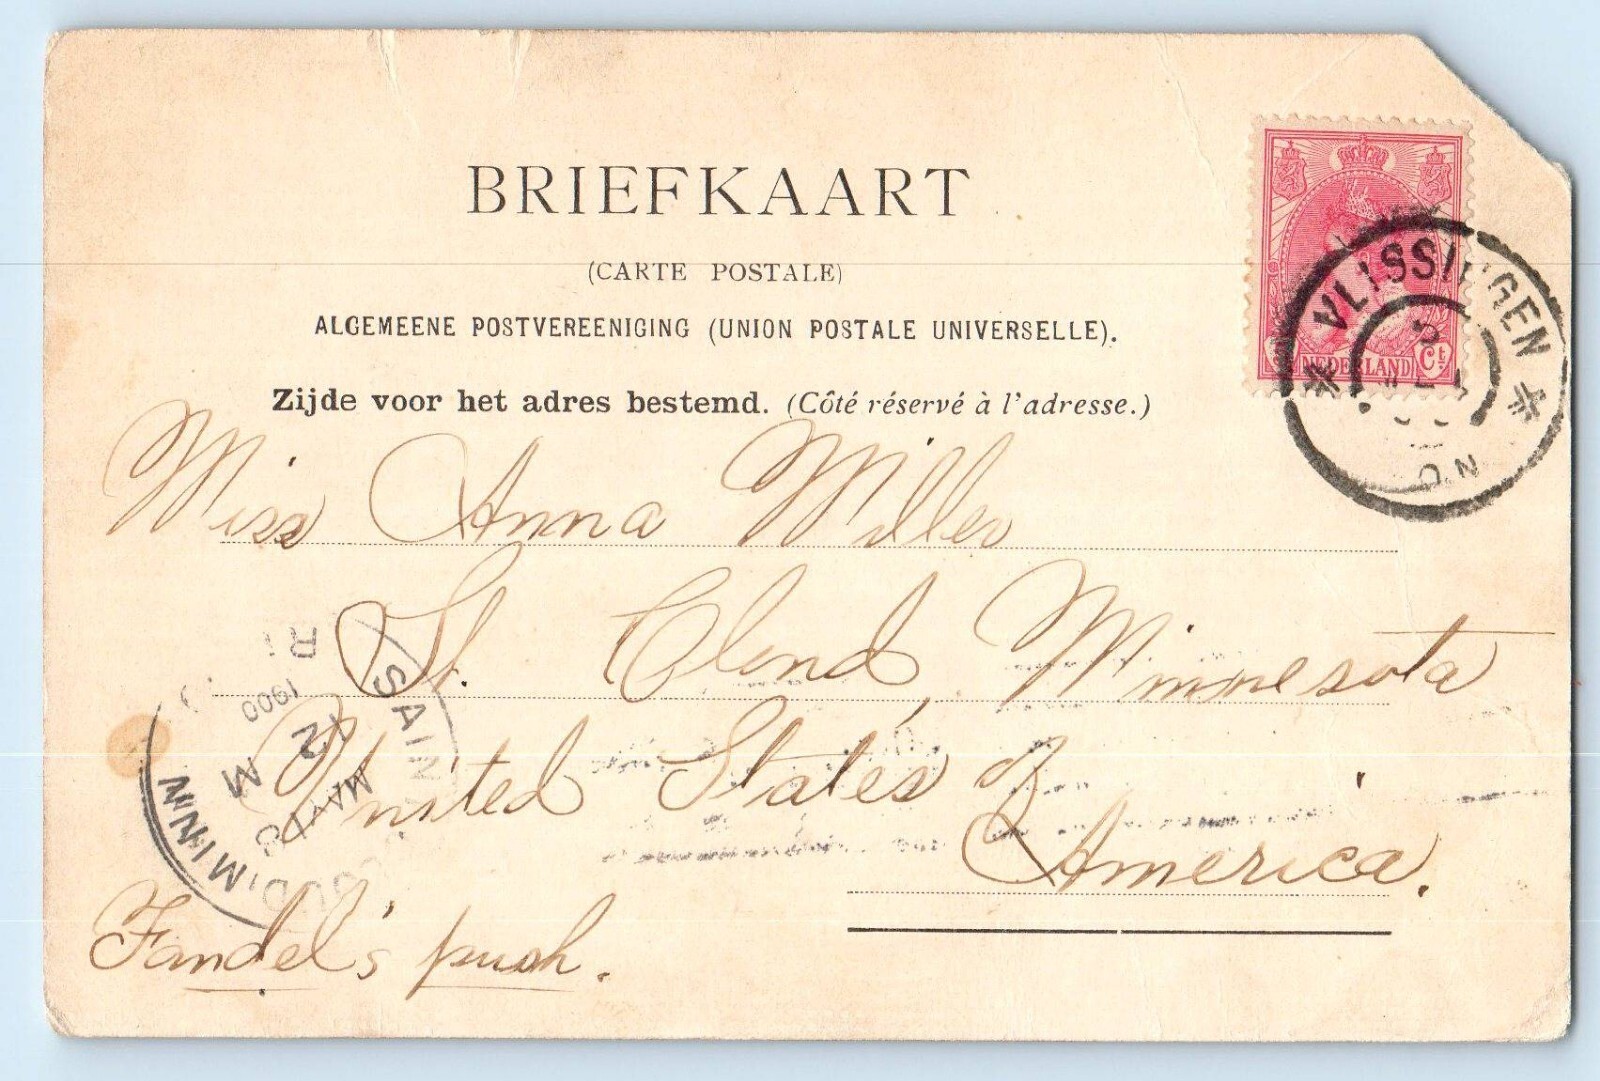 BRIEFKAART
(CARTE POSTALE)
ALGEMEENE POSTVEREENIGING (UNION POSTALE UNIVERSELLE).
Zijde voor het adres bestemd. (Côté réservé à l'adresse.)
NEDERLAND Ct
VLISSINGEN
Miss Anna Miller
St. Cloud, Minnesota
United States
America.
Fandel's push.
SAINT CLOUD, MINN
MAY
1900